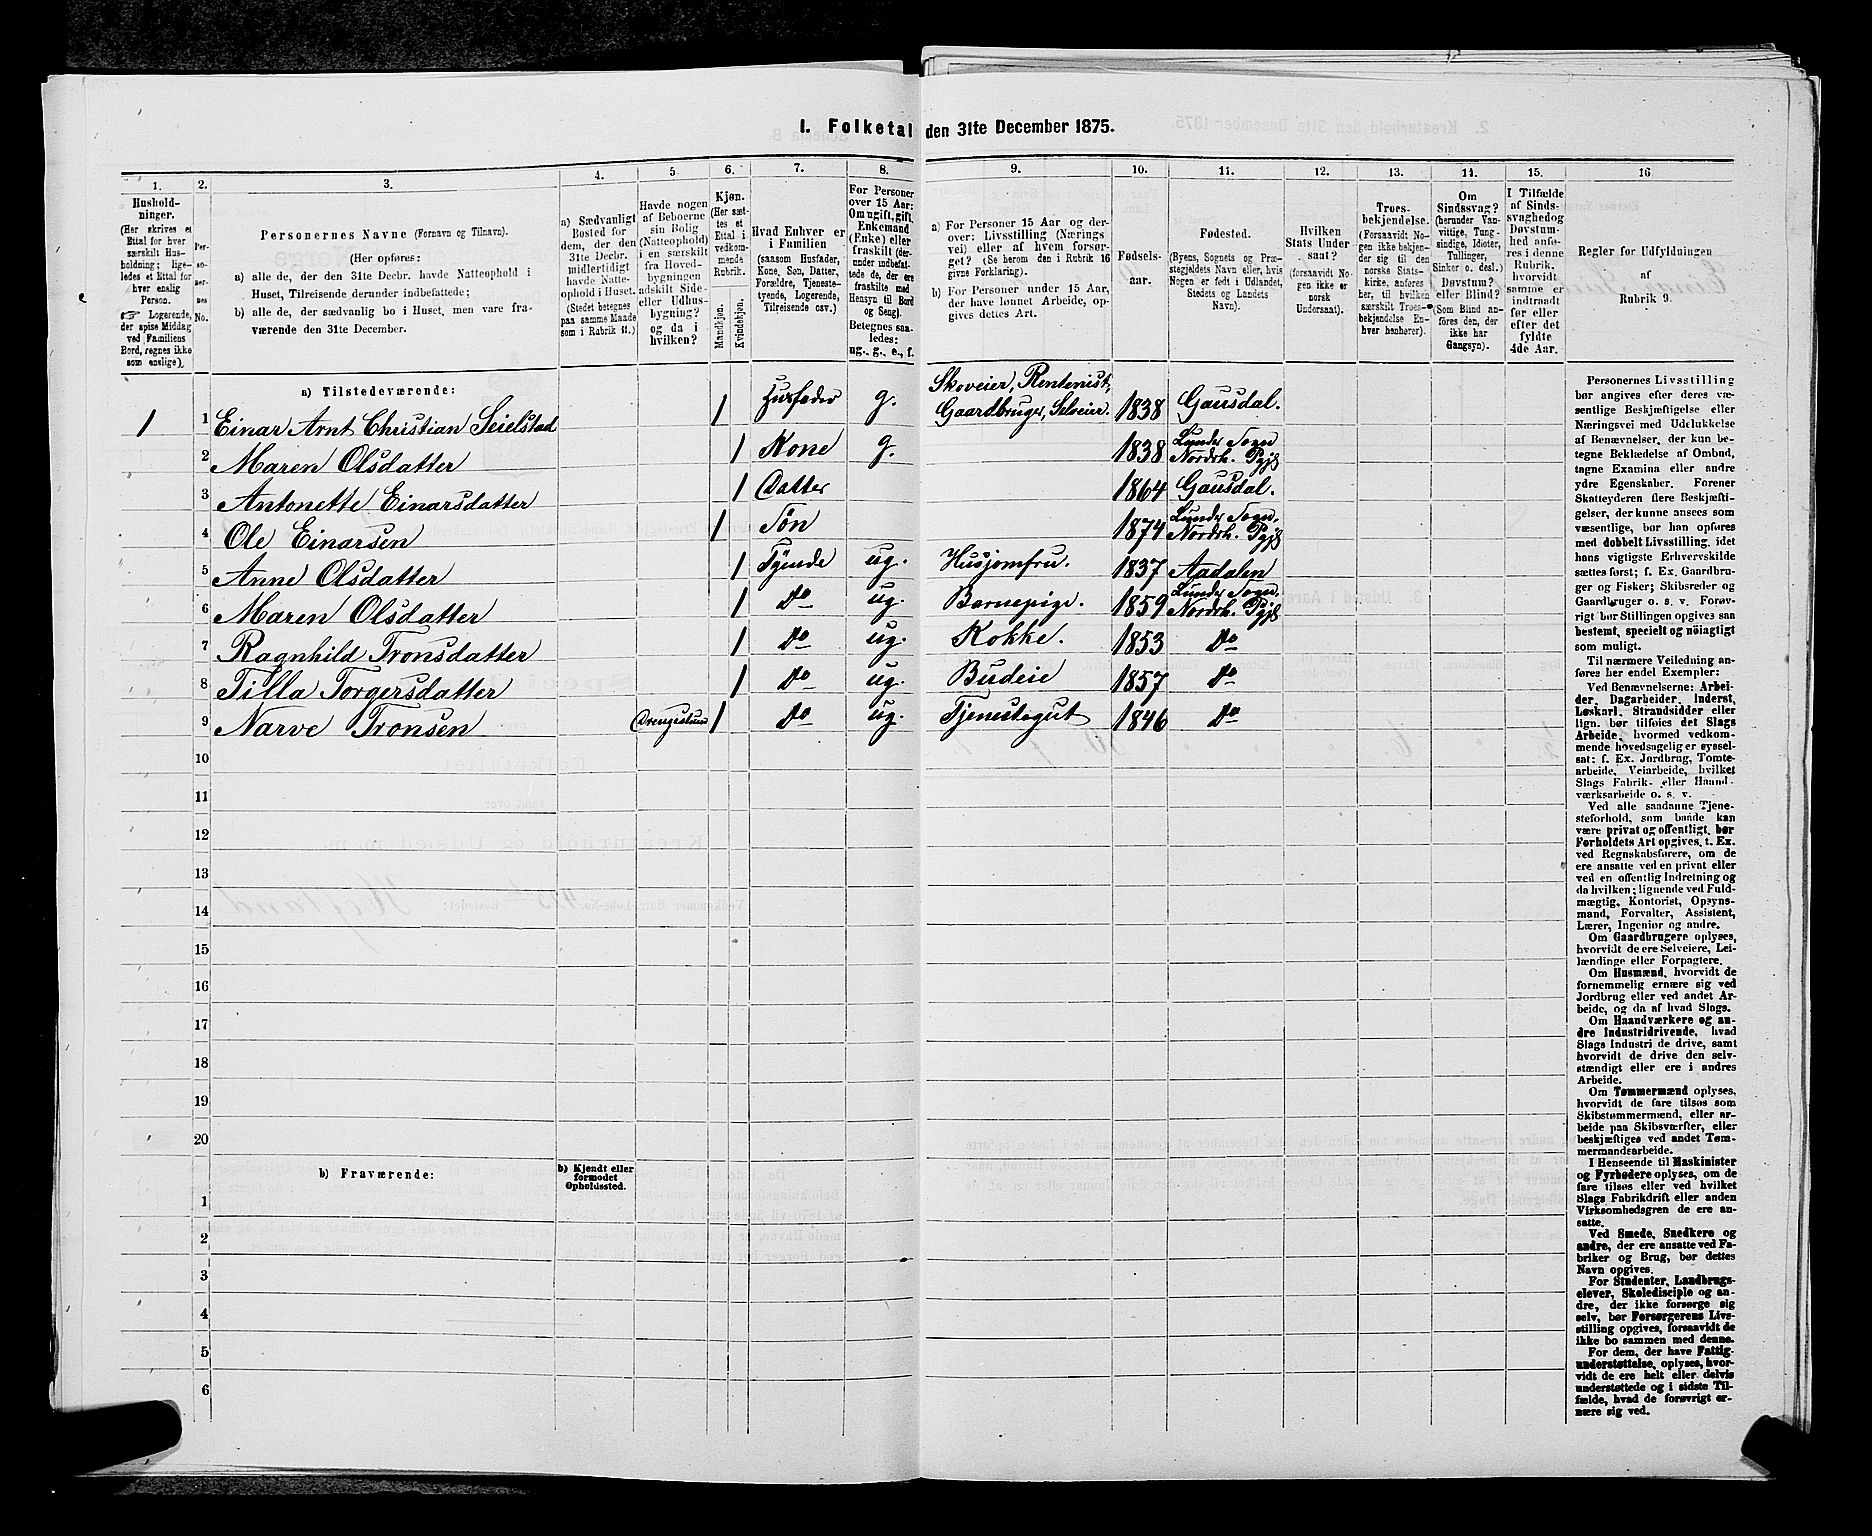 I. Folketal den 31te December 1875.
1.
Husholdninger.
(Her skrives et
Ettal for hver
særskilt Husholdning; ligeledes et Ettal for
hver enslig
Person.
☞ Logerende,
der spise Middag
ved Familiens
Bord, regnes ikke
som enslige).
2.
Personernes
No.
3.
Personernes Navne (Fornavn og Tilnavn).
(Her opføres:
a) alle de, der den 31te Decbr. havde Natteophold i
Huset, Tilreisende derunder indbefattede;
b) alle de, der sædvanlig bo i Huset, men vare fraværende den 31te December.
4.
a) Sædvanligt
Bosted for
dem, der den
31te Decbr.
midlertidigt
havde Natteophold i Huset.
(Stedet betegnes
paa samme Maade
som i Rubrik 11.)
5.
Havde nogen
af Beboerne
sin Bolig
(Natteophold)
i en særskilt
fra Hovedbygningen
adskilt Side- eller Udhusbygning?
og da i
hvilken?
6.
Kjøn.
(Her sættes et
Ettal i
vedkommende
Rubrik.
Mandkjøn.
Kvindekjøn.
7.
Hvad Enhver er
i Familien
(saasom Husfader,
Kone, Søn, Datter,
Forældre, Tjenestetyende, Logerende,
Tilreisende osv.)
8.
For Personer
over 15 Aar:
Om ugift, gift,
Enkemand
(Enke) eller
fraskilt (derunder indbefattede de, der ere
fraskilte med
Hensyn til Bord
og Seng).
Betegnes saaledes:
ug., g., e., f.
9.
a) For Personer 15 Aar og derover: Livsstilling (Næringsvei) eller af hvem forsørget? (Se herom den i Rubrik 16
givne Forklaring).
b) For Personer under 15 Aar,
der have lønnet Arbeide, opgives dettes Art.
10.
Fødselsaar.
11.
Fødested.
(Byens, Sognets og Præstegjeldets Navn eller, hvis
Nogen er født i Udlandet,
Stedets og Landets
Navn).
12.
Hvilken
Stats Undersaat?
(forsaavidt Nogen ikke er
norsk
Undersaat).
13.
Troesbekjendelse.
(Forsaavidt Nogen ikke bekjender sig til den
norske Statskirke, anføres
her, til hvilken
særskilt Troesbekjendelse Enhver henhører).
14.
Om
Sindssvag?
(herunder Vanvittige, Tungsindige, Idioter,
Tullinger,
Sinker o. desl.)
Døvstum?
eller Blind?
(Som Blind anføres den, der
ikke har
Gangsyn).
15.
I Tilfælde
af Sindssvaghed og
Døvstumhed anføres i denne
Rubrik,
hvorvidt
samme er
indtraadt
før eller
efter det
fyldte
4de Aar.
16
Regler for Udfyldningen
af
Rubrik 9.
a) Tilstedeværende:
1 1 Einar Arnt Christian Seielstad 1 Husfader g. Skoveier, Rentenist, Gaardbruger, Selveier. 1838 Gausdal.
2 Maren Olsdatter 1 Kone g. 1838 Lunder Sogn Nordrh. Pgjld
3 Antonette Einarsdatter 1 Datter 1864 Gausdal.
4 Ole Einarsen 1 Søn 1874 Lunder Sogn, Nordrh. Pgjld
5 Anne Olsdatter 1 Tyende ug. Husjomfru. 1837 Aadalen
6 Maren Olsdatter 1 do ug. Barnepige. 1859 Lunder Sogn, Nordrh. Pgjld
7 Ragnhild Tronsdatter 1 do ug. Kokke. 1853 do
8 Tilla Torgersdatter 1 do ug. Budeie 1857 do
9 Narve Tronsen Drengestuen 1 do ug. Tjenestegut 1846 do
10
11
12
13
14
15
16
17
18
19
20
b) Fraværende:
b) Kjendt eller
formodet
Opholdssted.
1
2
3
4
5
6
Personernes Livsstilling
bør angives efter deres væsentlige Beskjæftigelse eller
Næringsvei med Udelukkelse
af Benævnelser, der kun betegne Beklædelse af Ombud,
tagne Examina eller andre
ydre Egenskaber. Forener
Skatteyderen flere Beskjæftigelser, der kunne ansees som
væsentlige, bør han opføres
med dobbelt Livsstilling, idet
hans vigtigste Erhvervskilde
sættes først; f. Ex. Gaardbruger og Fisker; Skibsreder og
Gaardbruger o. s. v. Forøvrigt bør Stillingen opgives saa
bestemt, specielt og nøiagtigt
som muligt.
Til nærmere Veiledning anføres her endel Exempler:
Ved Benævnelserne: Arbeider, Dagarbeider, Inderst,
Løskarl, Strandsidder eller
lign. bør tilføies det Slags
Arbeide, hvormed vedkommende hovedsagelig er sysselsat; f. Ex. Jordbrug, Tomtearbeide, Veiarbeide, hvilket
Slags Fabrik- eller Haandværksarbeide o. s. v.
Ved alle saadanne Tjenesteforhold, som baade kan
være privat og offentligt, bør
Forholdets Art opgives, f. Ex.
ved Regnskabsførere, om de
ere ansatte ved en privat eller
ved en offentlig Indretning og
da hvilken; lignende ved Fuldmægtig, Kontorist, Opsynsmand, Forvalter, Assistent,
Lærer, Ingeniør og andre.
Om Gaardbrugere oplyses,
hvorvidt de ere Selveiere, Leilændinge eller Forpagtere.
Om Husmænd, hvorvidt de
fornemmelig ernære sig ved
Jordbrug eller ved andet Arbeide, og da af hvad Slags.
Om Haandværkere og andre Industridrivende, hvad
Slags Industri de drive, samt
hvorvidt de drive den selvstændigt eller ere i andres
Arbeide.
Om Tømmermænd oplyses,
hvorvidt de fare tilsøs som
Skibstømmermænd, eller arbeide paa Skibsværfter, eller
beskjæftiges ved andet Tømmermandsarbeide.
I Henseende til Maskinister
og Fyrbødere oplyses, om de
fare tilsøs eller ved hvilket
Slags Fabrikdrift eller anden
Virksomhedsgren de ere ansatte.
Ved Smede, Snedkere og
andre, der ere ansatte ved Fabriker og Brug, bør dettes
Navn opgives.
For Studenter, Landbrugselever, Skoledisciple og andre, der ikke forsørge sig
selv, bør Forsørgerens Livsstilling opgives, forsaavidt de
ikke bo sammen med denne.
For dem, der have Fattigunderstøttelse, oplyses, hvorvidt de ere helt eller delvis
understøttede og i sidste Tilfælde, hvad de forøvrigt ernære sig ved.